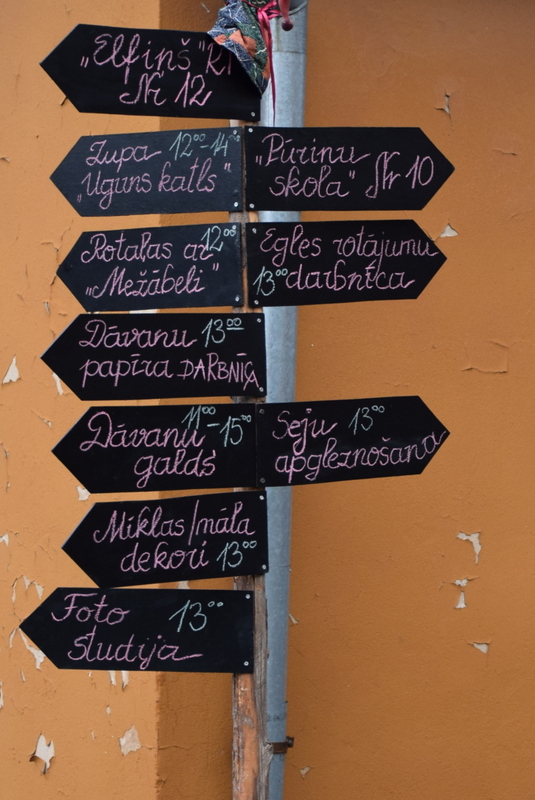 "Elfiņš"
Nr 12
Zupa 12⁰⁰-14
"Uguns katls"
"Pūriņu
skola" Nr 10
Rotaļas ar 12⁰⁰
"Mežābeli"
Egles rotājumu
13⁰⁰ darbnīca
Dāvanu 13⁰⁰
papīra DARBNĪCA
11⁰⁰-15⁰⁰
Dāvanu
galds
Seju 13⁰⁰
apgleznošana
Mīklas/māla
dekori 13⁰⁰
Foto 13⁰⁰
studija